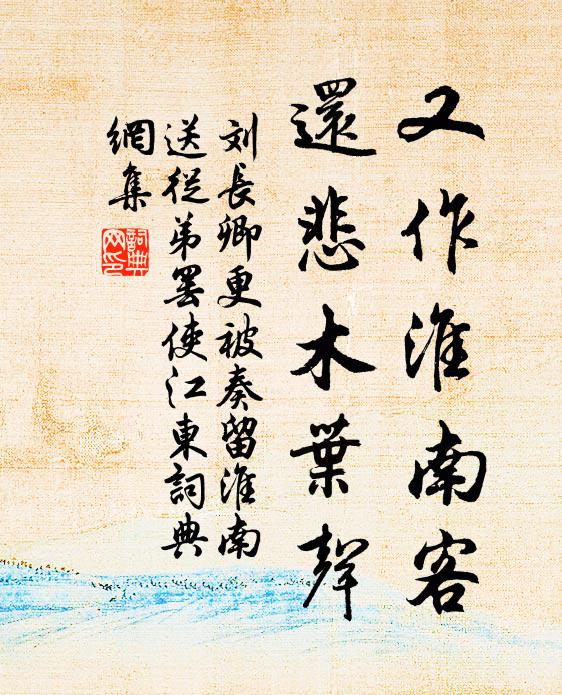 又作淮南客
還悲木葉聲
刘長卿更被奏留淮南
送從弟罢使江東詞典
網集
詞典
网印